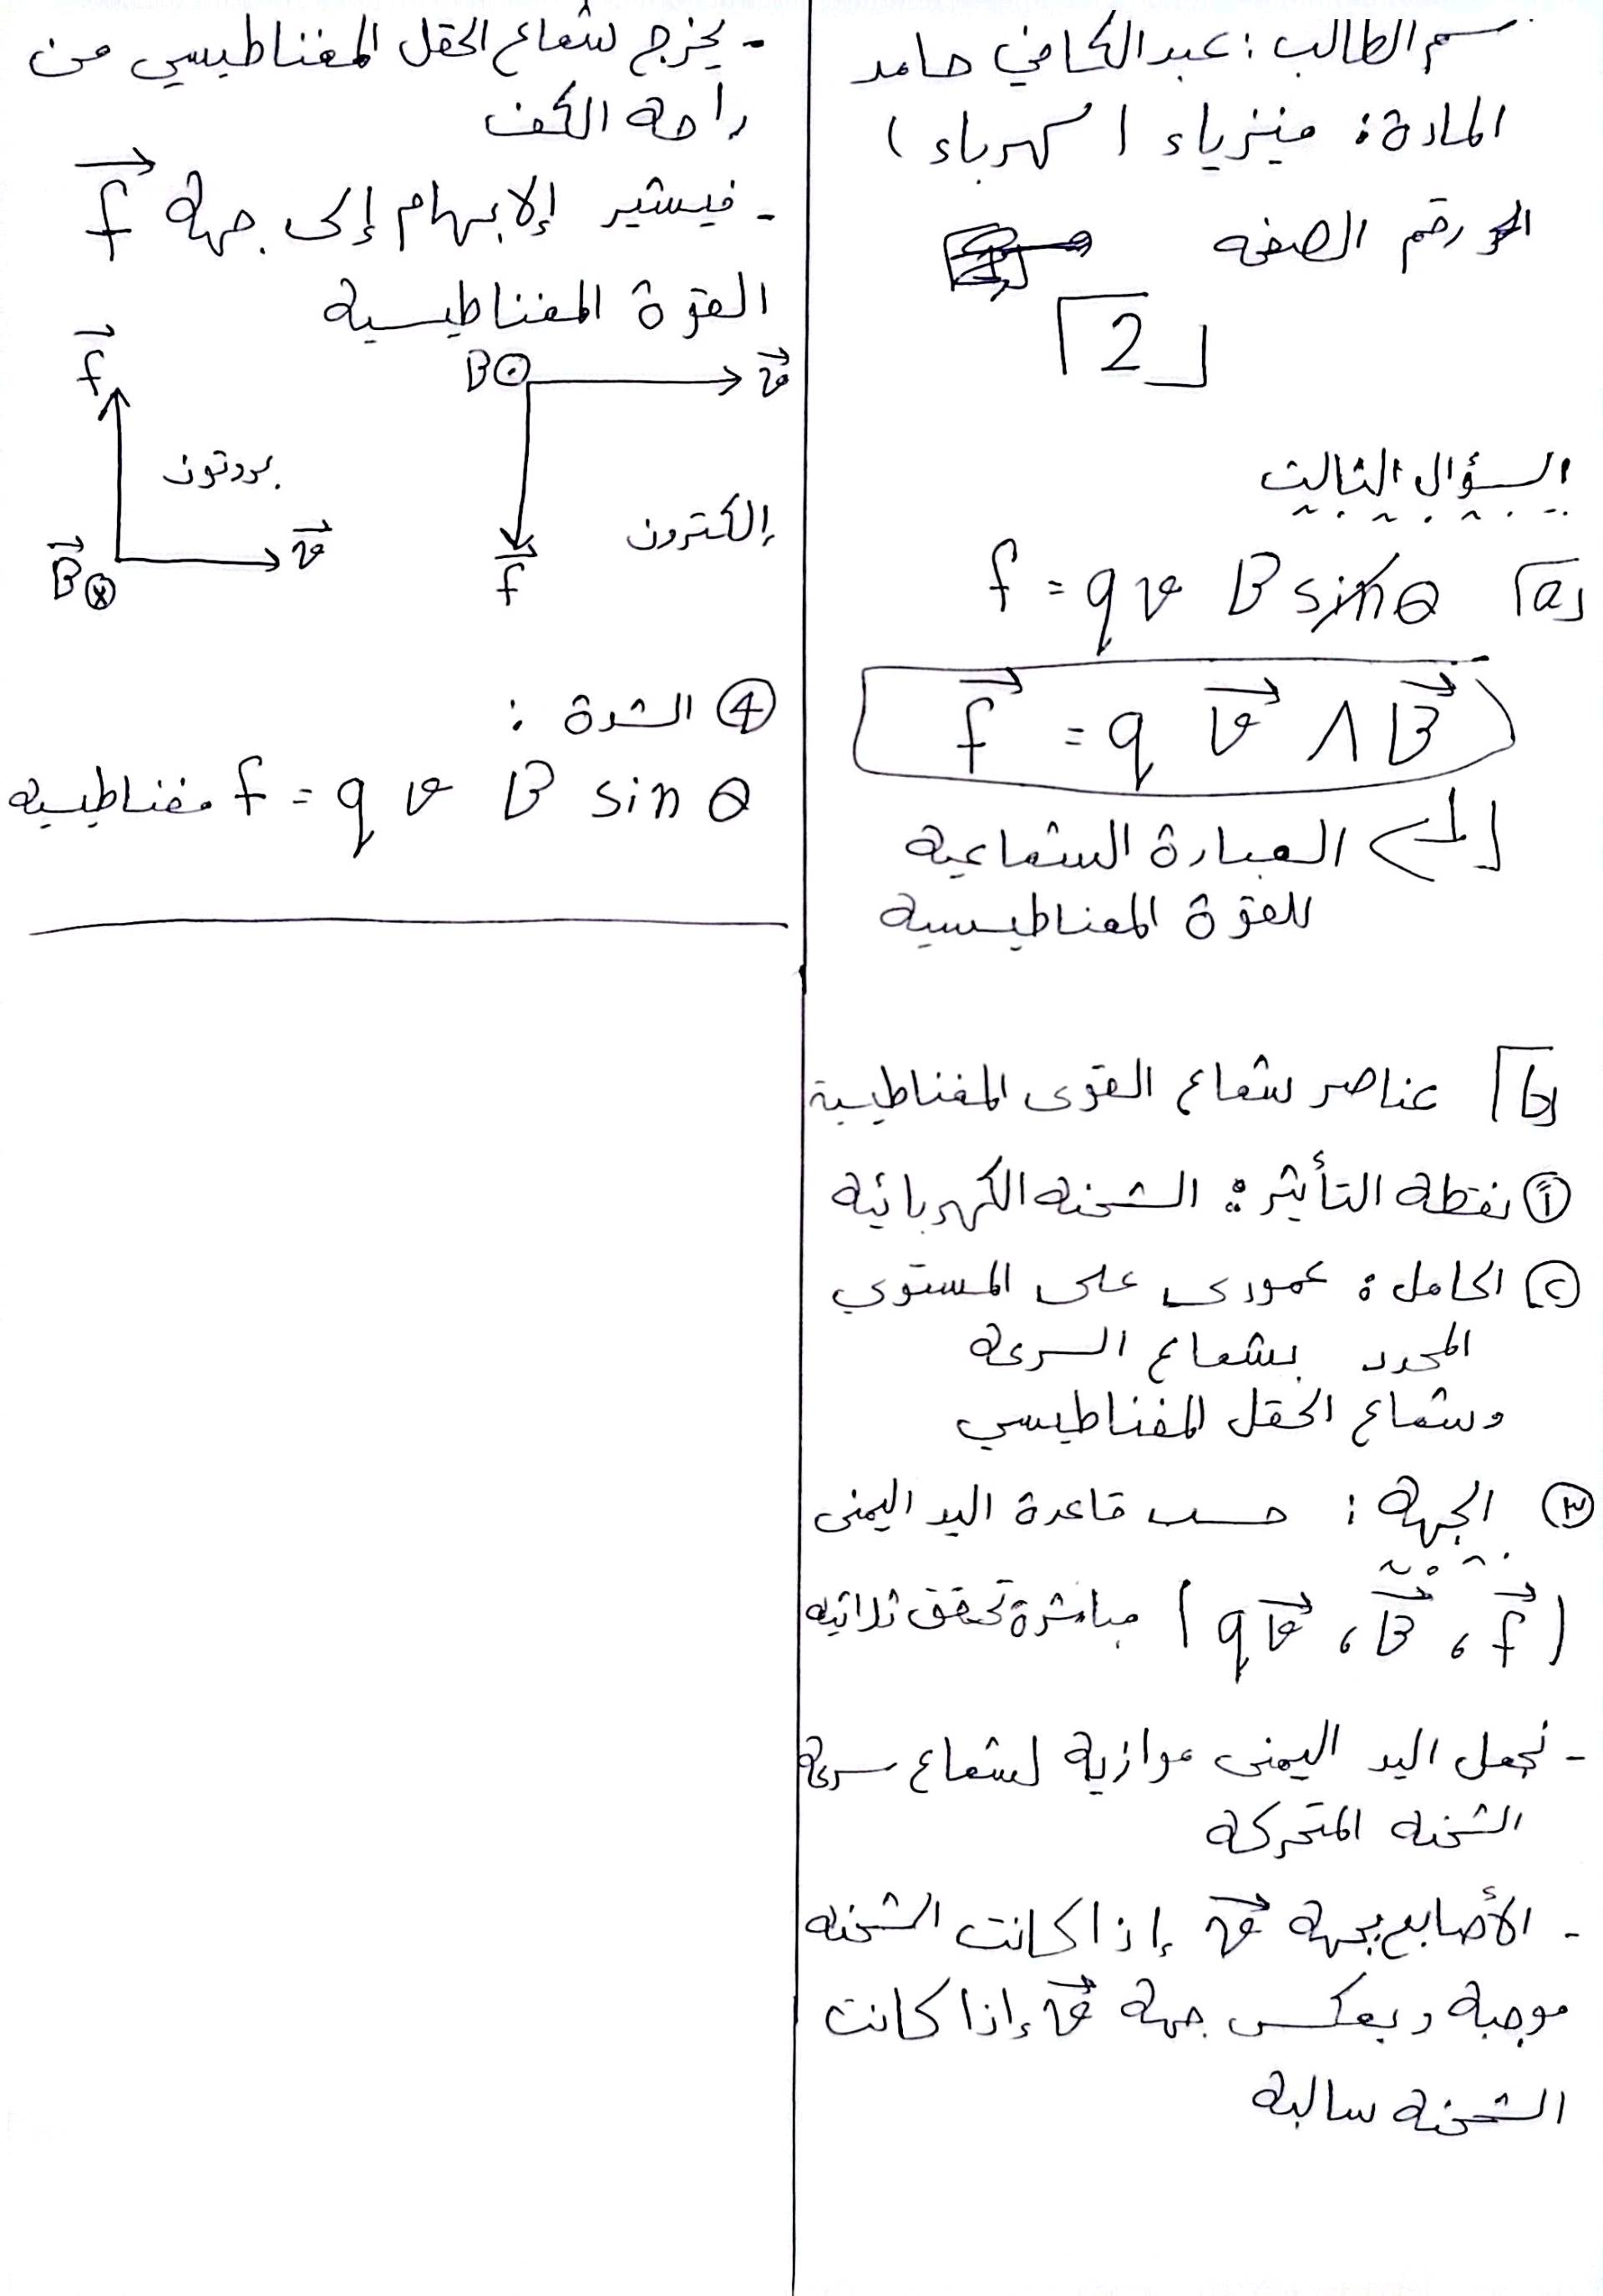 سم الطالب : عبد الكافي حامد
المادة : فيزياء ( كهرباء )
رقم الصفحه
2
السؤال الثالث
a f = q v B sin θ
f = q v ∧ B
1 العبارة الشعاعية
للقوة المغناطيسية
b عناصر شعاع القوى المغناطيسية
① نقطة التأثير : الشحنه الكهربائية
② الحامل : عمودي على المستوي
المحدد بشعاع السرعة
وشعاع الحقل المغناطيسي
③ الجهة : حسب قاعدة اليد اليمنى
مباشرة تحقق ثلاثيه ( qv ، B ، f )
- نجعل اليد اليمنى موازية لشعاع سرعة
الشحنه المتحركة
- الأصابع بجهة v إذا كانت الشحنه
موجبة وبعكس جهة v إذا كانت
الشحنه سالبة
- يخرج شعاع الحقل المغناطيسي من
راحة الكف
- فيشير الإبهام إلى جهة f
القوة المغناطيسية
B v
f
إلكترون
f
بروتون
B v
④ الشدة :
مغناطيسية f = q v B sin θ